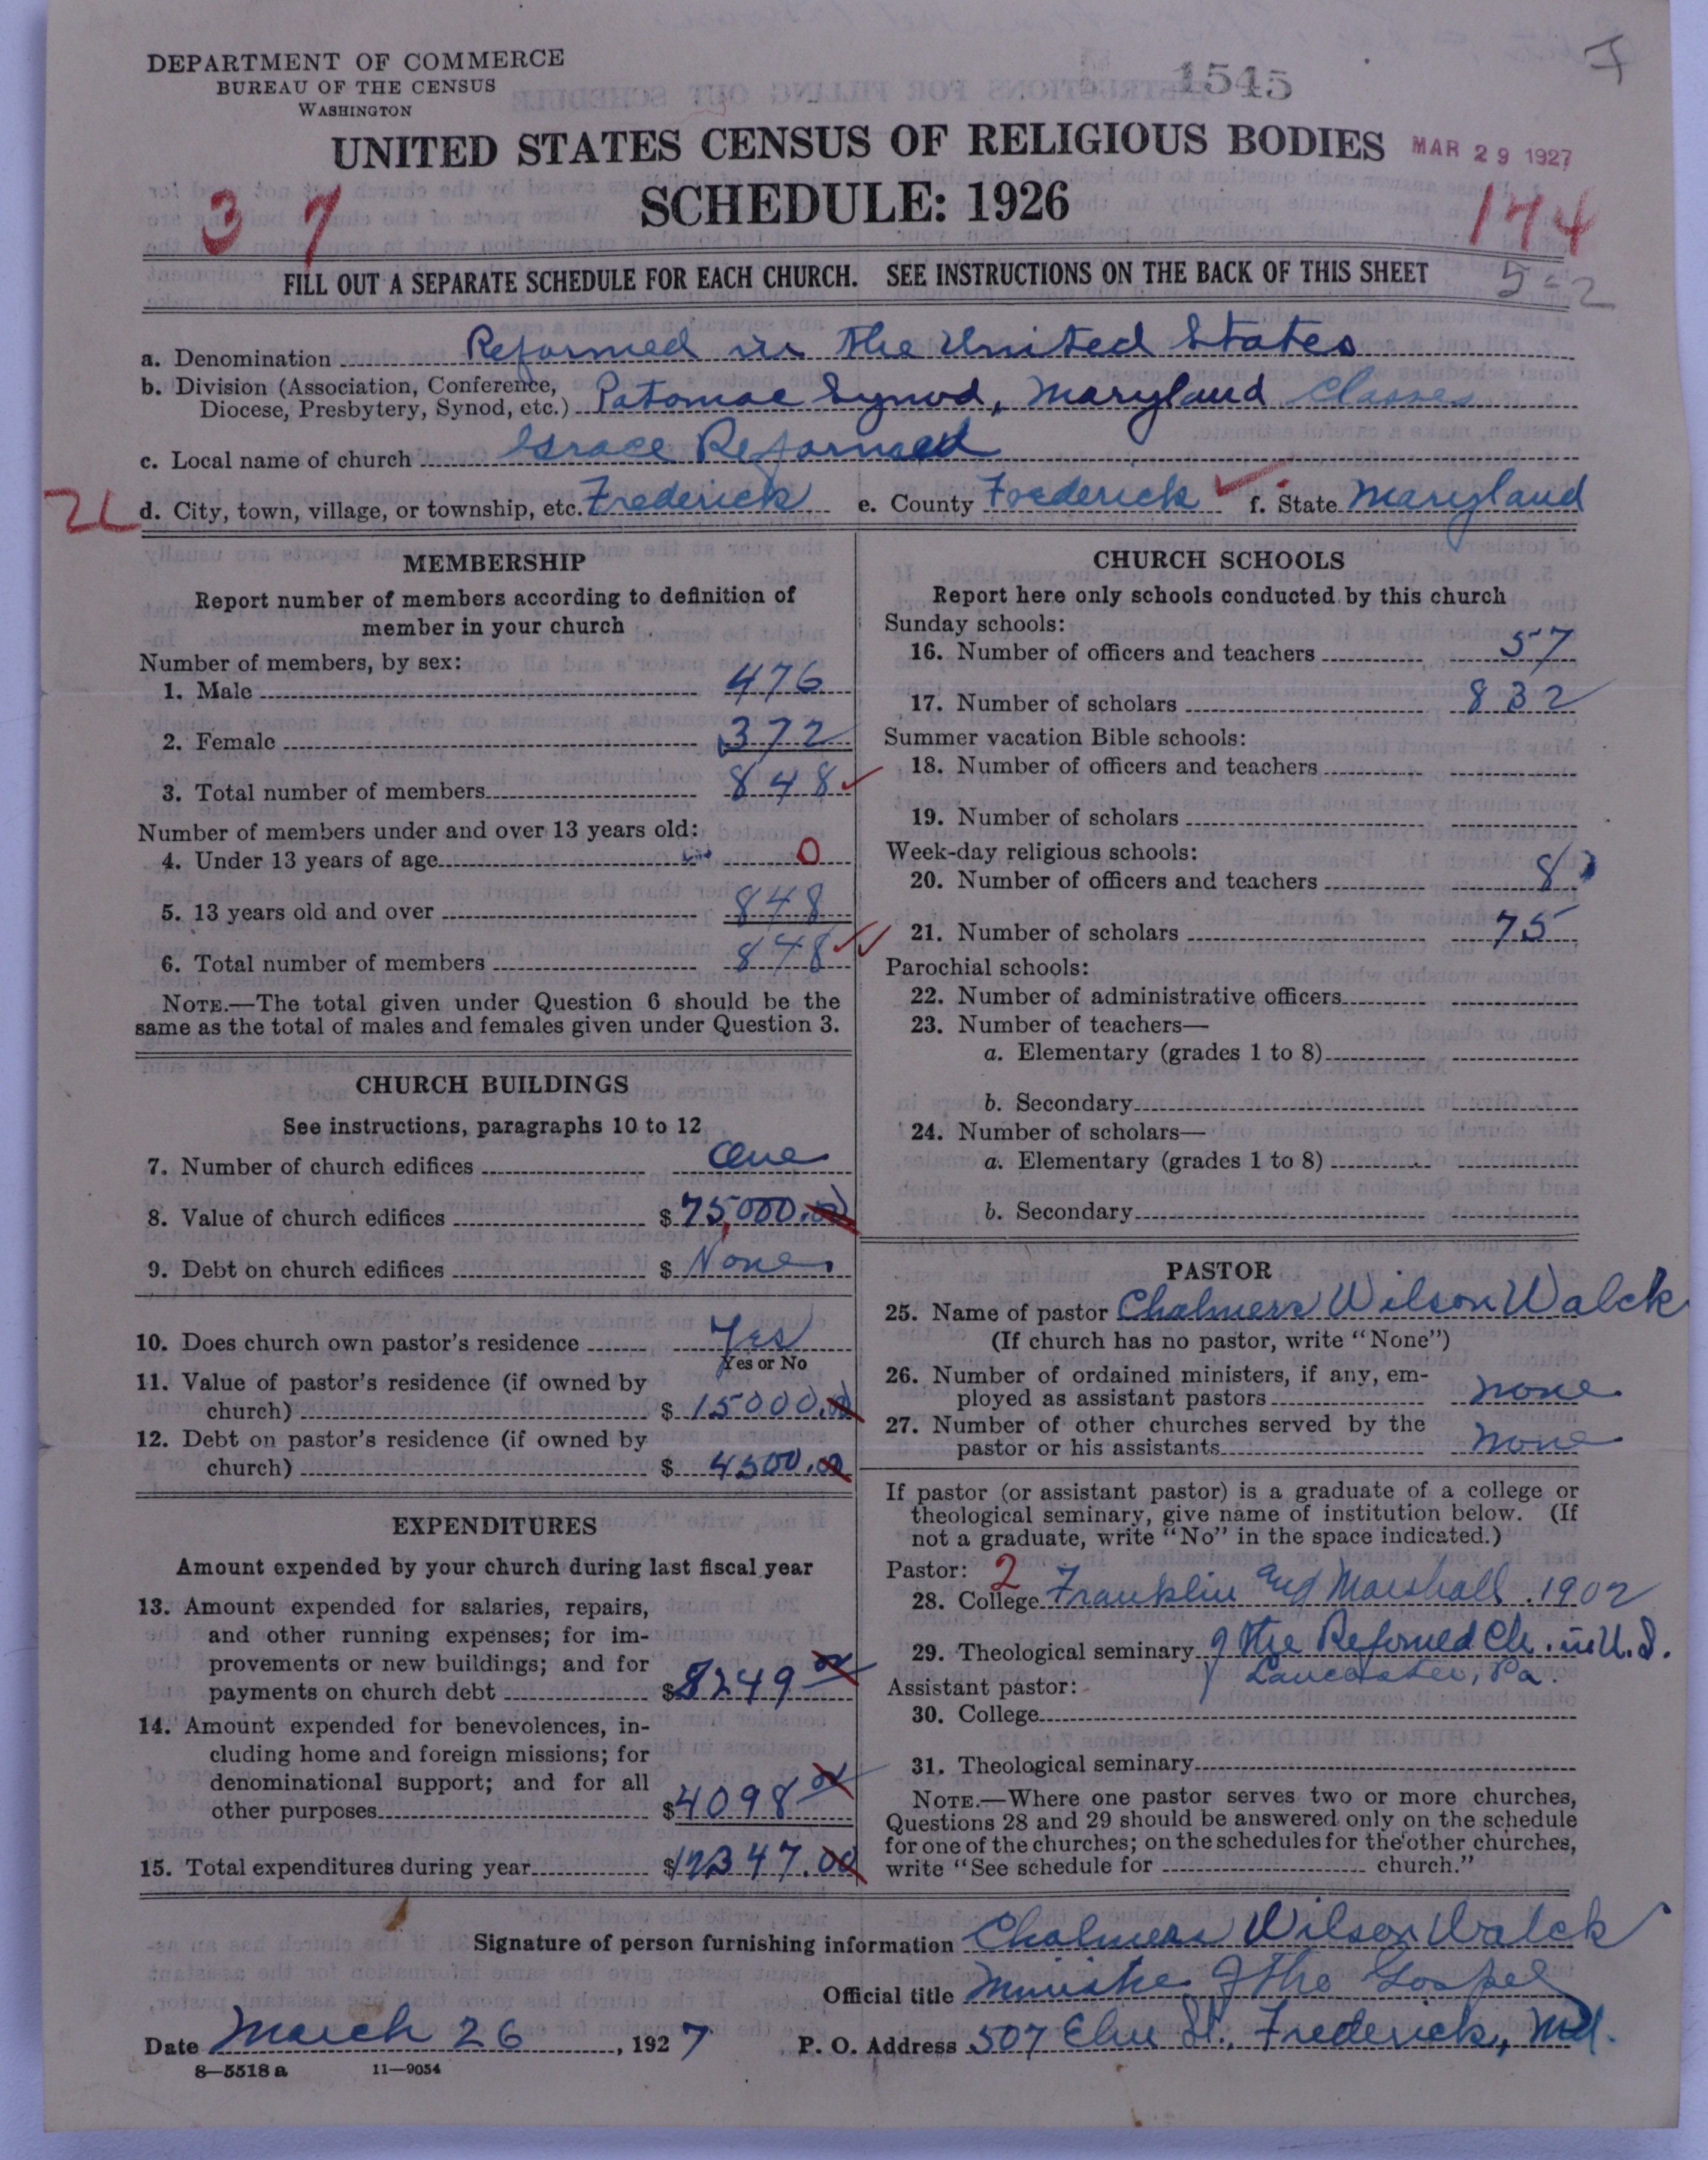 DEPARTMENT OF COMMERCE
BUREAU OF THE CENSUS
WASHINGTON
1545
UNITED STATES CENSUS OF RELIGIOUS BODIES
MAR 29 1927
SCHEDULE: 1926
37
174
FILL OUT A SEPARATE SCHEDULE FOR EACH CHURCH. SEE INSTRUCTIONS ON THE BACK OF THIS SHEET
5-2
a. Denomination Reformed in the United States
b. Division (Association, Conference, Diocese, Presbytery, Synod, etc.) Potomac Synod, Maryland Classes
c. Local name of church Grace Reformed
d. City, town, village, or township, etc. Frederick e. County Frederick f. State Maryland
MEMBERSHIP
Report number of members according to definition of
member in your church
Number of members, by sex:
1. Male 476
2. Female 372
3. Total number of members 848
Number of members under and over 13 years old:
4. Under 13 years of age 0
5. 13 years old and over 848
6. Total number of members 848
NOTE.—The total given under Question 6 should be the
same as the total of males and females given under Question 3.
CHURCH BUILDINGS
See instructions, paragraphs 10 to 12
7. Number of church edifices One
8. Value of church edifices $75,000.00
9. Debt on church edifices $ None
10. Does church own pastor's residence Yes
Yes or No
11. Value of pastor's residence (if owned by
church) $ 15000.00
12. Debt on pastor's residence (if owned by
church) $ 4500.00
EXPENDITURES
Amount expended by your church during last fiscal year
13. Amount expended for salaries, repairs,
and other running expenses; for im-
provements or new buildings; and for
payments on church debt $8249
14. Amount expended for benevolences, in-
cluding home and foreign missions; for
denominational support; and for all
other purposes $4098
15. Total expenditures during year $12347.00
CHURCH SCHOOLS
Report here only schools conducted by this church
Sunday schools:
16. Number of officers and teachers 57
17. Number of scholars 832
Summer vacation Bible schools:
18. Number of officers and teachers
19. Number of scholars
Week-day religious schools:
20. Number of officers and teachers 8
21. Number of scholars 75
Parochial schools:
22. Number of administrative officers
23. Number of teachers—
a. Elementary (grades 1 to 8)
b. Secondary
24. Number of scholars—
a. Elementary (grades 1 to 8)
b. Secondary
PASTOR
25. Name of pastor Chalmers Wilson Walck
(If church has no pastor, write "None")
26. Number of ordained ministers, if any, em-
ployed as assistant pastors none
27. Number of other churches served by the
pastor or his assistants none
If pastor (or assistant pastor) is a graduate of a college or
theological seminary, give name of institution below. (If
not a graduate, write "No" in the space indicated.)
Pastor: 2
28. College Franklin and Marshall. 1902
29. Theological seminary of the Reformed Ch. in U.S.
Lancaster, Pa.
Assistant pastor:
30. College
31. Theological seminary
NOTE.—Where one pastor serves two or more churches,
Questions 28 and 29 should be answered only on the schedule
for one of the churches; on the schedules for the other churches,
write "See schedule for church."
Signature of person furnishing information Chalmers Wilson Walck
Official title Minister of the Gospel
Date March 26, 1927 P. O. Address 507 Elm St. Frederick, Md.
8—5518a 11—9054